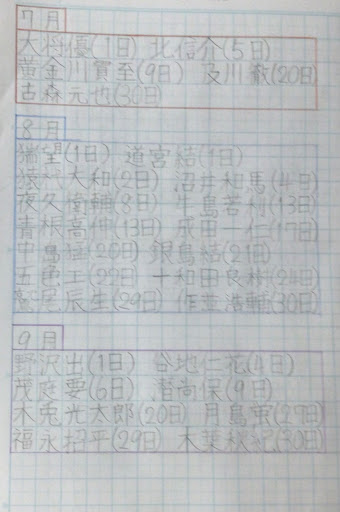 7月
大将優(1日) 北信介(5日)
黄金川貫至(9日) 及川徹(20日)
古森元也(30日)
8月
猯望(1日) 道宮結(1日)
猿杙大和(2日) 沼井和馬(4日)
夜久衛輔(8日) 牛島若利(13日)
青根高伸(13日) 成田一仁(17日)
中島猛(20日) 銀島結(21日)
五色工(22日) 十和田良樹(24日)
鷲尾辰生(29日) 作並浩輔(30日)
9月
野沢出(1日) 谷地仁花(4日)
茂庭要(6日) 潜尚保(9日)
木兎光太郎(20日) 月島蛍(27日)
福永招平(29日) 木葉秋紀(30日)